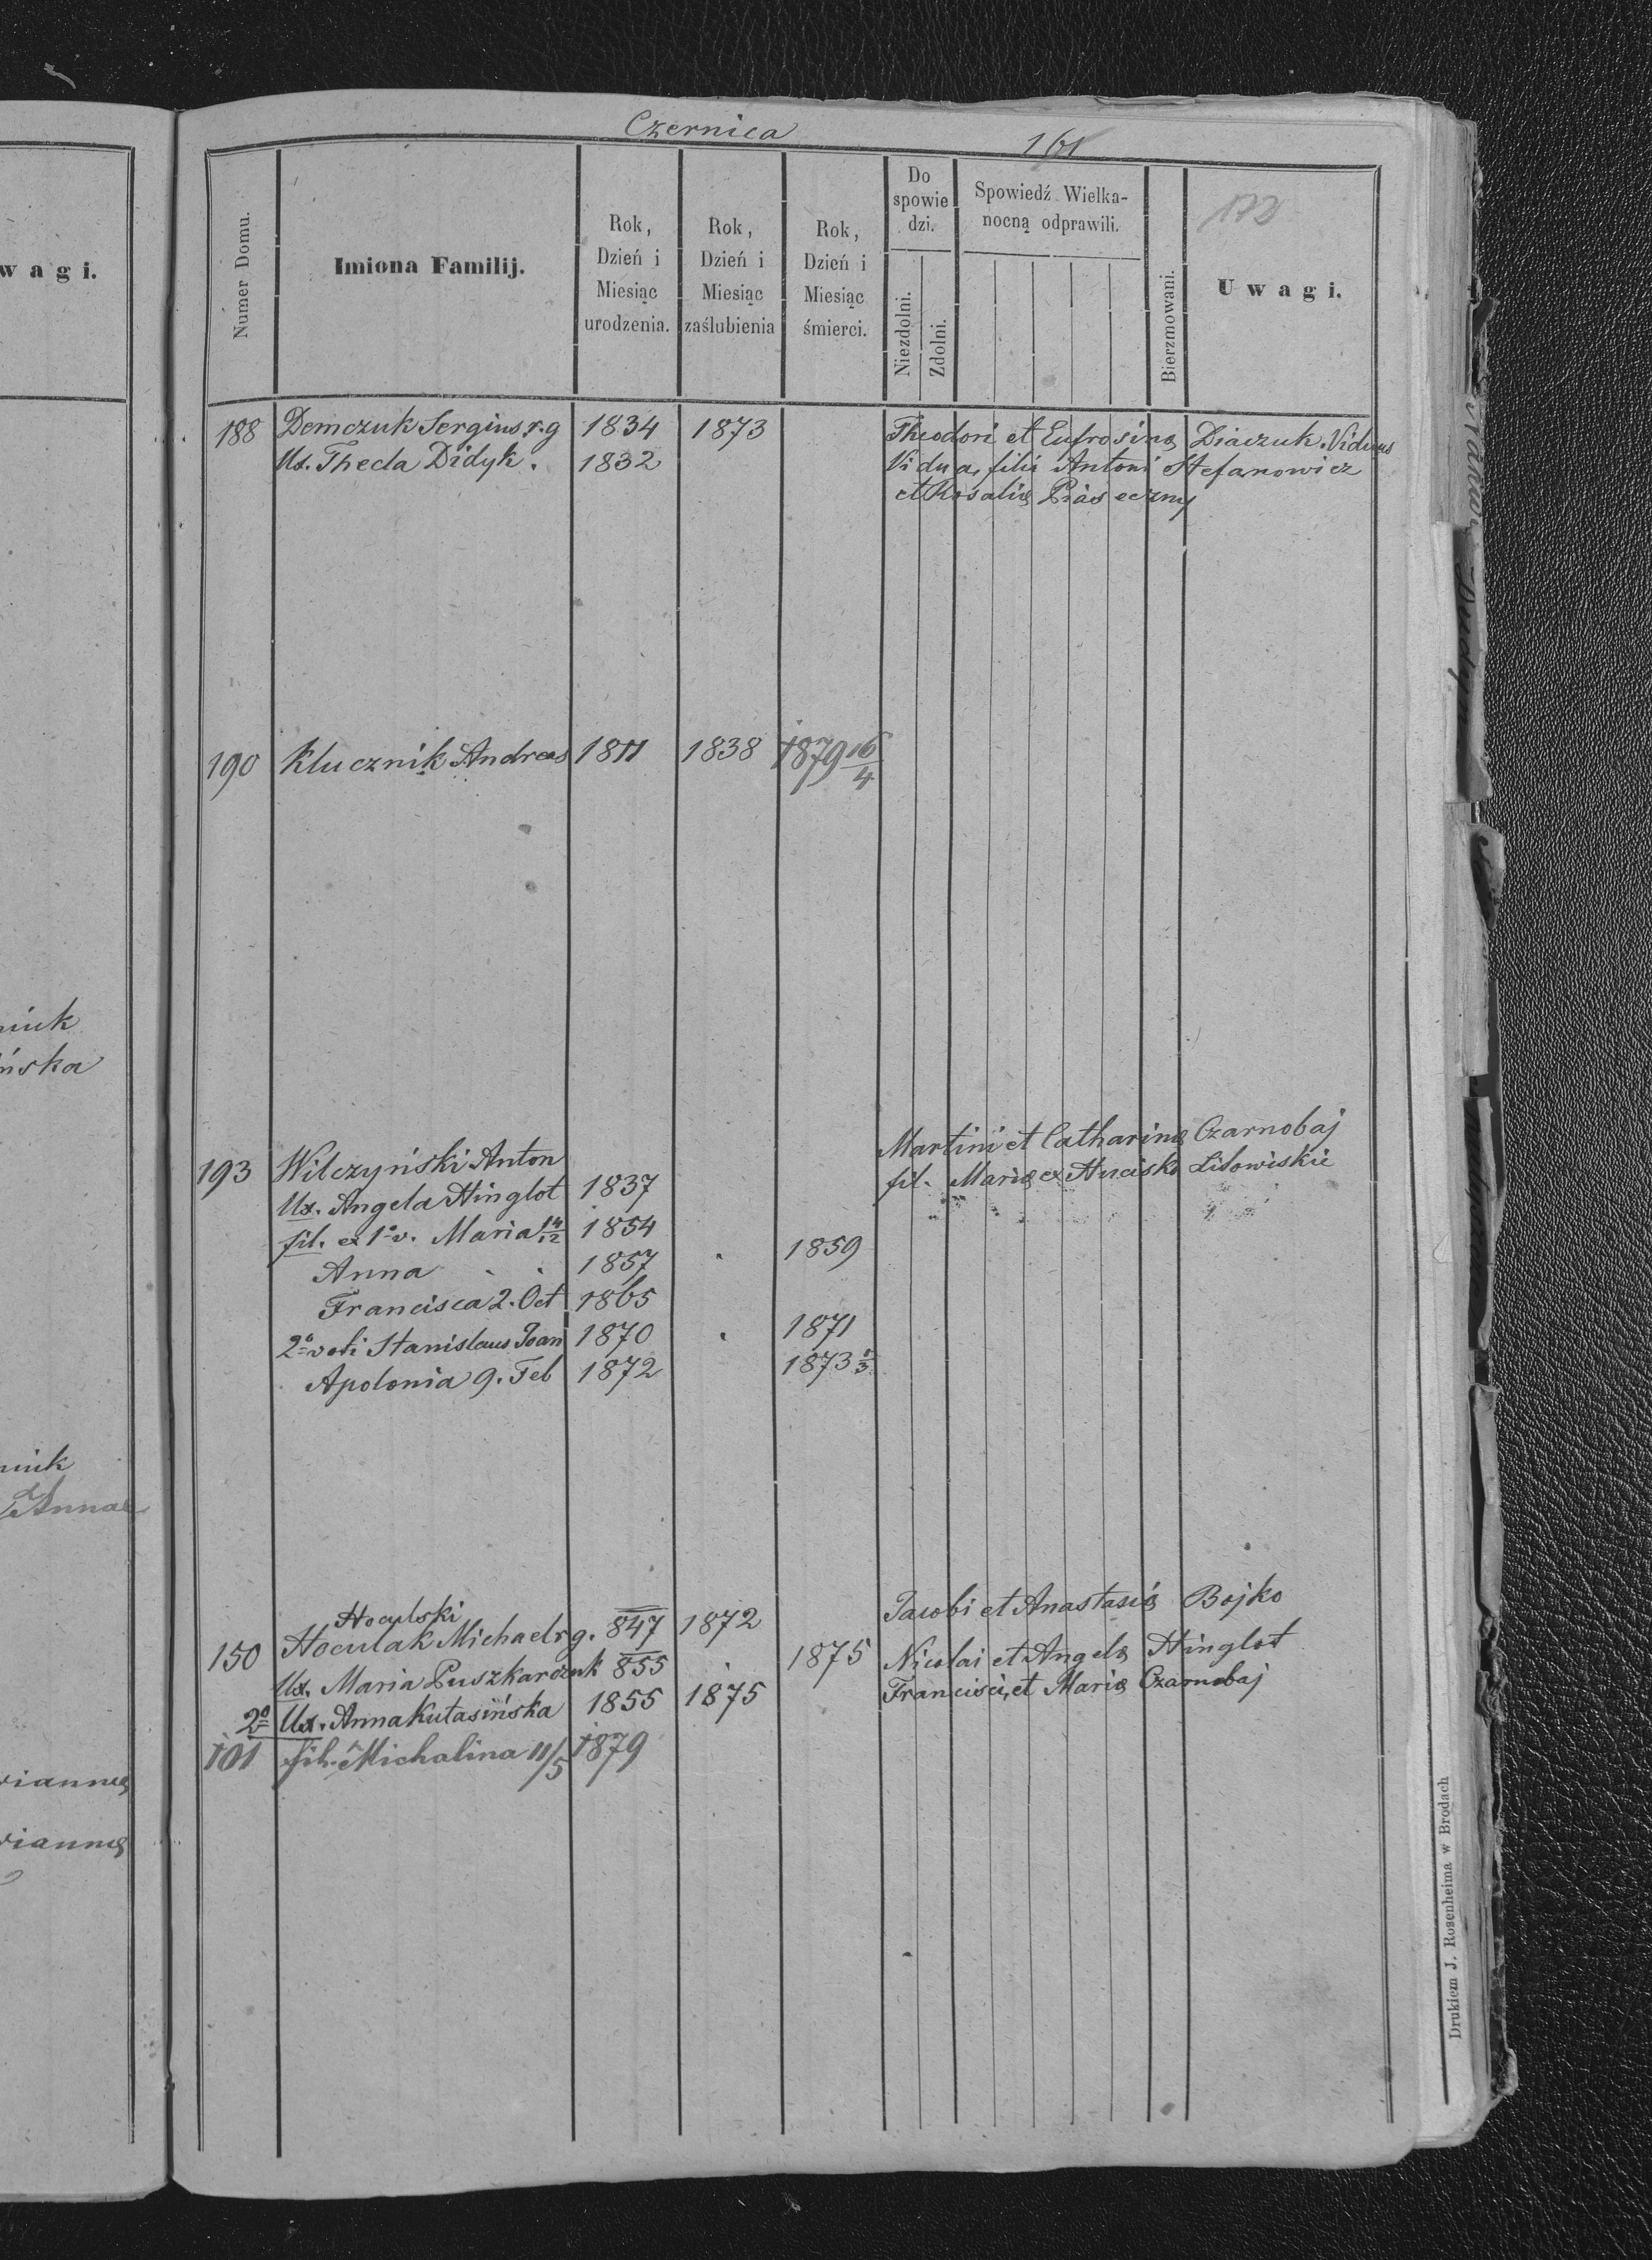 Czernica
161
w a g i.
Numer Domu.
Imiona Familij.
Rok,
Dzień i
Miesiąc
urodzenia.
Rok,
Dzień i
Miesiąc
zaślubienia
Rok,
Dzień i
Miesiąc
śmierci.
Do
spowie
dzi.
Niezdolni.
Zdolni.
Spowiedź Wielka-
nocną odprawili.
Bierzmowani.
172
U w a g i.
188 Demczuk Sergius r. g 1834 1873 Theodori et Eufrosinę Diaczuk. Viduus
Ux. Thecla Didyk. 1832 Vidua, filia Antoni Stefanowicz
et Rosalię Piaseczny
190 Klucznik Andreas 1811 1838 1879 16/4
193 Wilczyński Anton Martini et Catharinę Czarnobaj
Ux. Angela Hinglot 1837 fil. Marię ex Hucisko Litowiskie
fil. ex 1º v. Maria 14/12 1854
Anna 1857 1859
Francisca 2. Oct 1865
2º voti Stanislaus Joan 1870 1871
Apolonia 9. Feb 1872 1873 1/3
Hoculski
150 Hoculak Michael r g. 847 1872 Jacobi et Anastasię Bojko
Ux. Maria Puszkarczuk 855 1875 Nicolai et Angelę Hinglot
2º Ux. Anna Kutasińska 1855 1875 Francisci, et Marię Czarnobaj
101 fil. Michalina 11/5 1879
niuk
ińska
niuk
Annae
riannę
riannę
Drukiem J. Rosenheima w Brodach